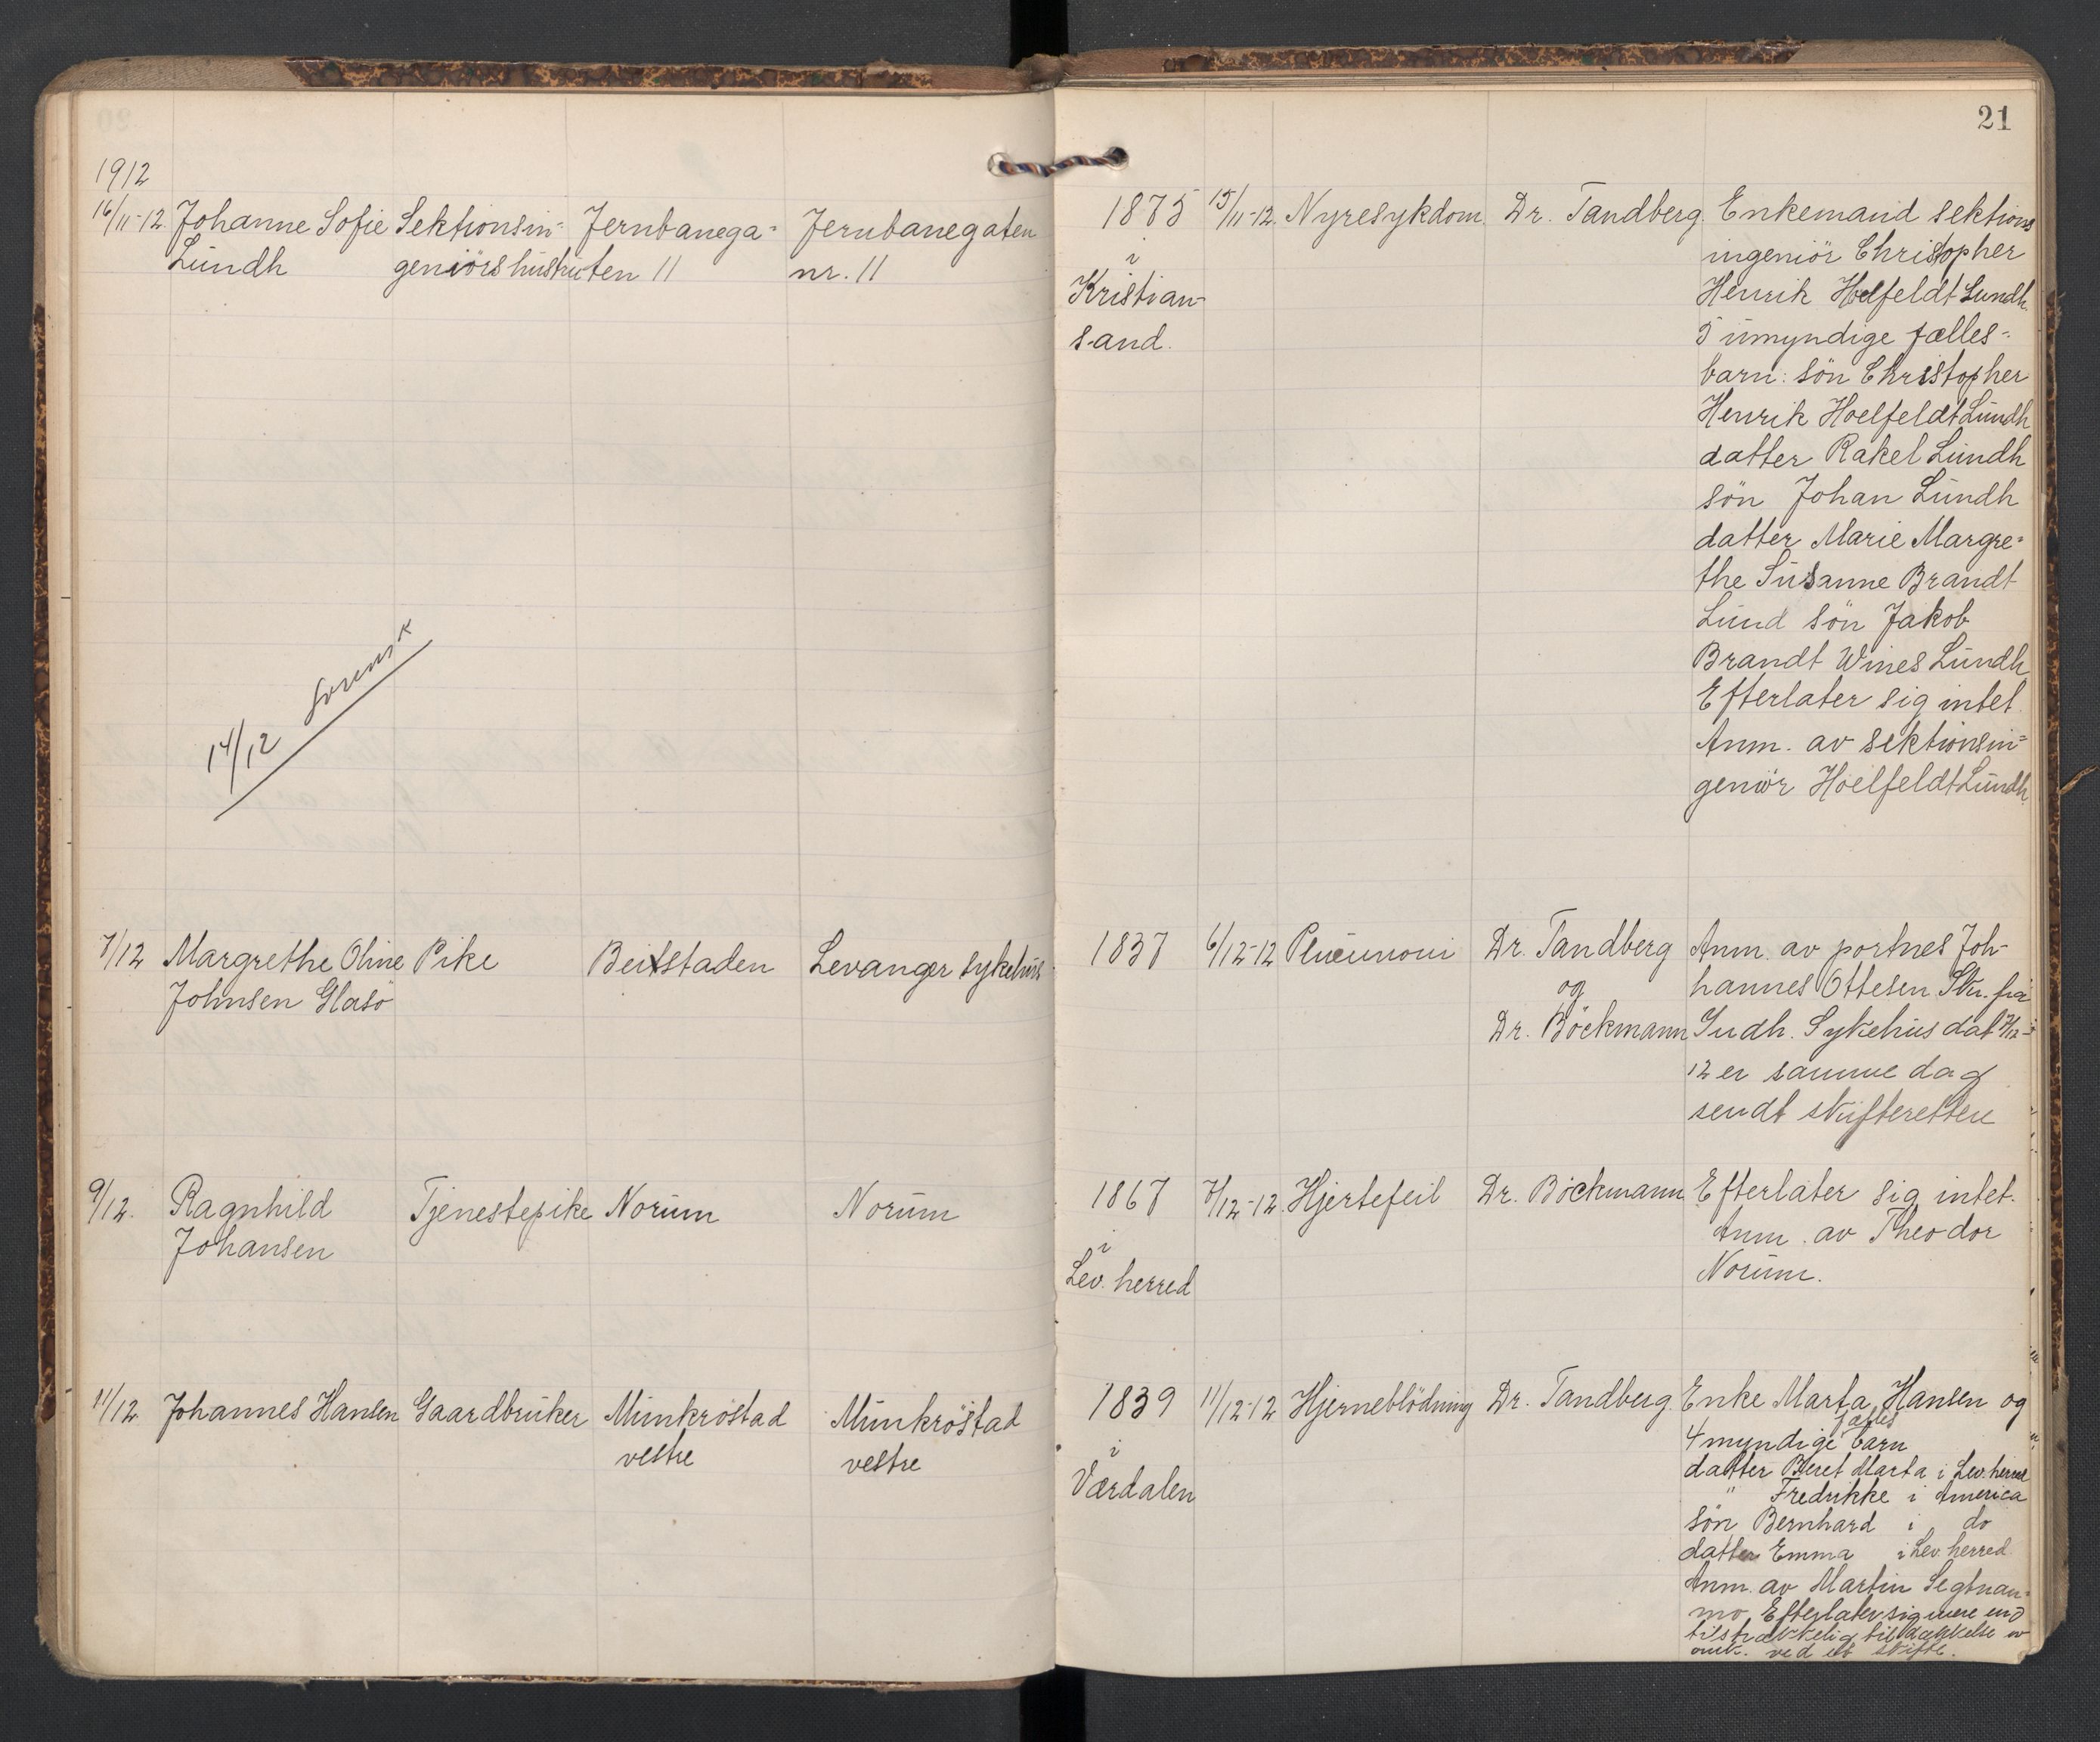 21
1912
16/11-12 Johanne Sofie Lundh Sektionsin= geniörs hustru Jernbanega= ten 11 Jernbanegaten nr. 11
1875 i Kristian- sand. 15/11-12. Nyresykdom. Dr. Tandberg.
Enkemand sektions
ingeniör Christopher
Henrik Hoelfeldt Lundh.
5 umyndige fælles-
barn: sön Christopher
Henrik Hoelfeldt Lundh
datter Rakel Lundh
sön Johan Lundh
datter Marie Margre=
the Susanne Brandt
Lund sön Jakob
Brandt Wines Lundh
Efterlater sig intet.
Anm. av sektionsin=
geniör Hoelfeldt Lundh.
14/12 sorensk
7/12 Margrethe Oline Johnsen Glasö Pike Beitstaden Levanger sykehus
1837 6/12-12 Pneumoni Dr. Tandberg og Dr. Böckmann
Anm. av portnes Joh-
hannes Ottesen Skr. fra
Indh. Sykehus dat 7/12-
12 er samme dag
sendt skifteretten
9/12. Ragnhild Johansen Tjenestepike Norum Norum
1867 i Lev. herred 7/12-12. Hjertefeil Dr. Böckmann
Efterlater sig intet.
Anm. av Theodor
Norum.
11/12. Johannes Hansen Gaardbruker Munkröstad vestre Munkröstad vestre
1839 i Værdalen 11/12-12 Hjerneblödning Dr. Tandberg.
Enke Marta Hansen og
4 myndige fælles barn
datter Beret Marta i Lev. herred
" Fredrikke i America
sön Bernhard i do
datter Emma i Lev. herred
Anm. av Martin Segtnan=
mo. Efterlater sig mere end
tilstrækkelig til dækkelse av
omk. ved et skifte.